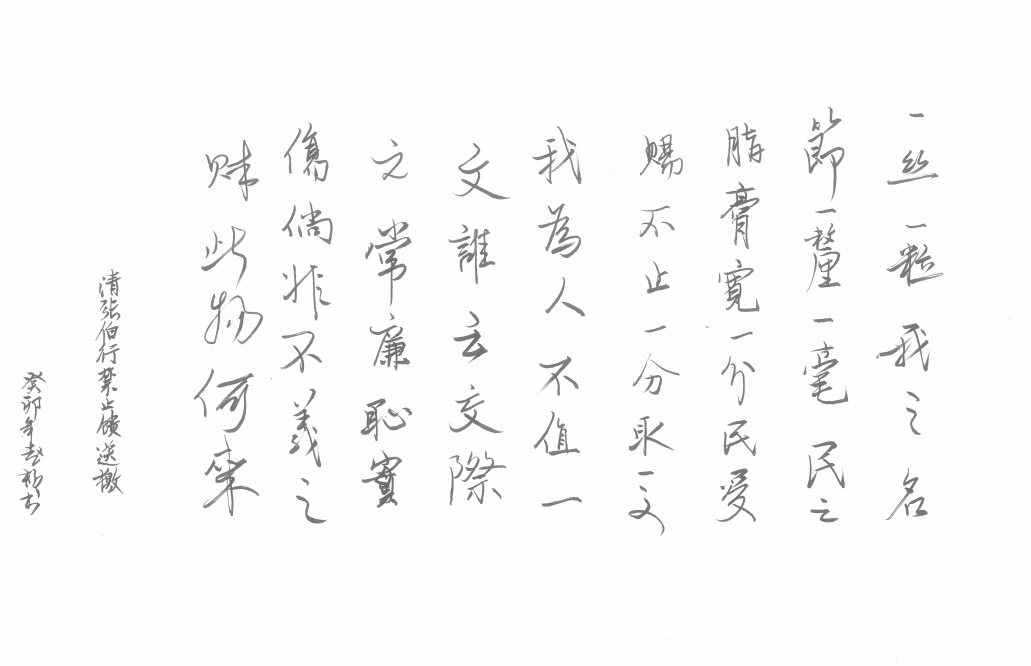 一丝一粒我之名
節一釐一毫民之
脂膏寬一分民受
賜不止一分取一文
我為人不值一
文誰云交際
之常廉恥實
傷倘非不義之
財此物何来
清張伯行禁止饋送檄
癸卯年